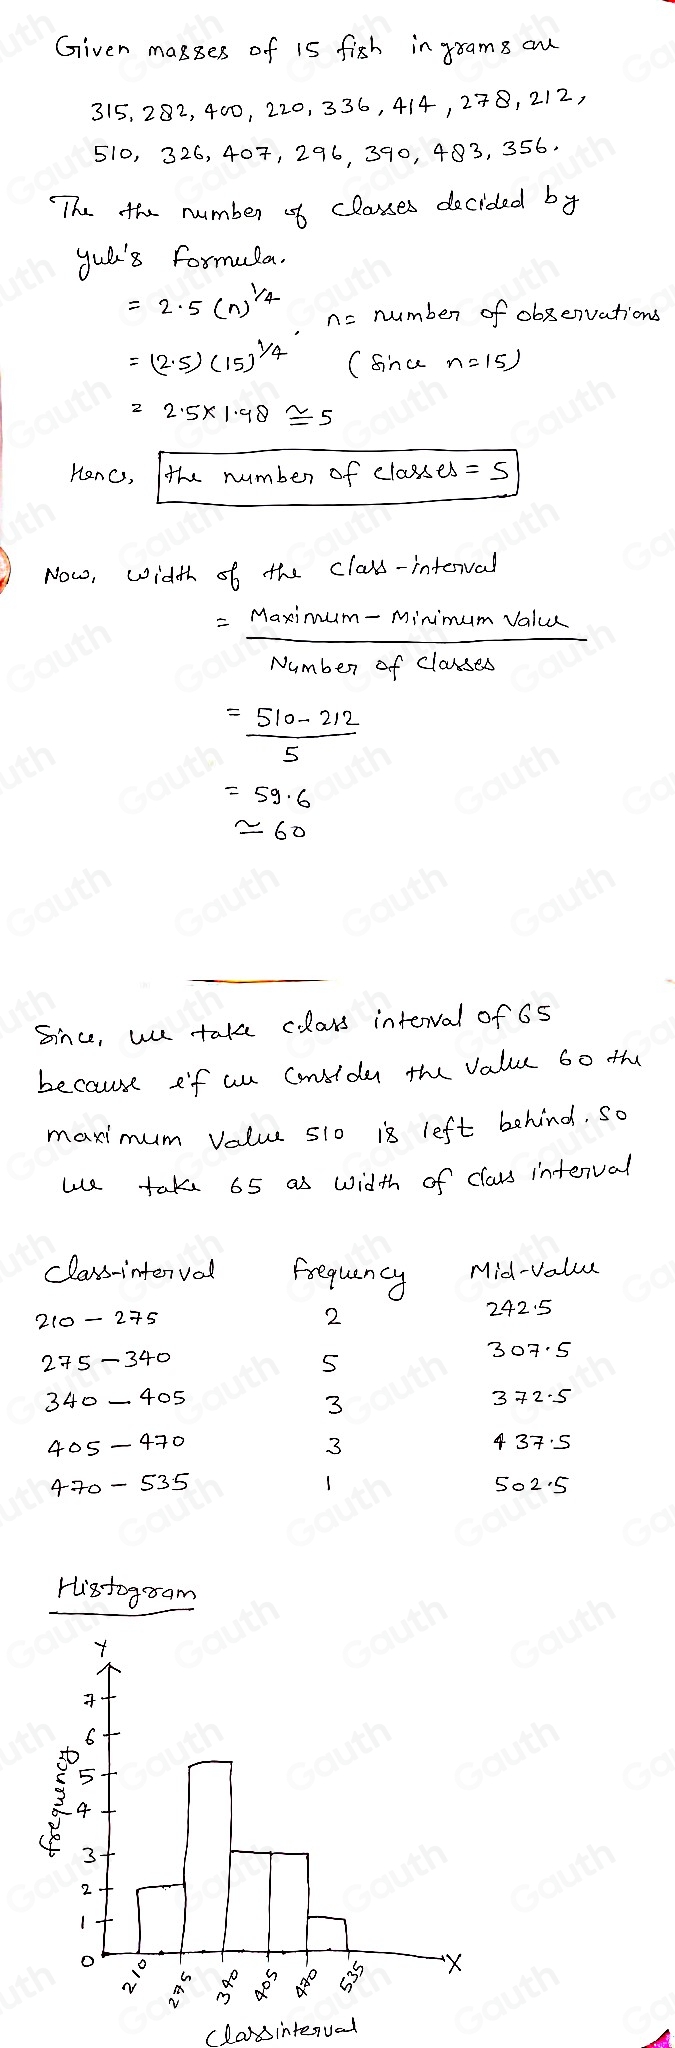 Given masses of 15 fish in grams are
315, 282, 400, 220, 336, 414, 278, 212,
510, 326, 407, 296, 390, 483, 356.
The the number of classes decided by
yule's formula.
= 2.5 (n)^1/4 , n= number of observations
= (2.5) (15)^1/4 (Since n=15)
= 2.5×1.98 ≅ 5
Hence, the number of classes = 5
Now, width of the class-interval
= Maximum - Minimum Value
Number of classes
= 510 - 212
5
= 59.6
≅ 60
Since, we take class interval of 65
because if we consider the value 60 the
maximum value 510 is left behind. So
we take 65 as width of class interval
Class-interval frequency Mid-value
210 - 275 2 242.5
275 - 340 5 307.5
340 - 405 3 372.5
405 - 470 3 437.5
470 - 535 1 502.5
Histogram
Y
7
6
5
4
3
2
1
0
frequency
210 275 340 405 470 535 X
Classinterval